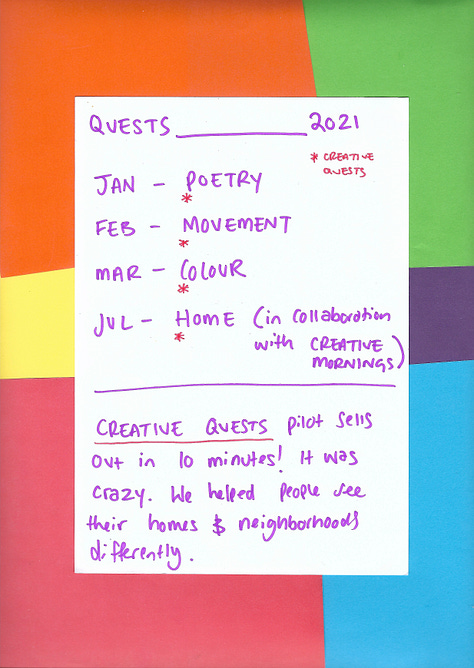 QUESTS ____________ 2021
* CREATIVE
QUESTS
JAN - POETRY
*
FEB - MOVEMENT
*
MAR - COLOUR
*
JUL - HOME (in collaboration
* with CREATIVE
MORNINGS)
CREATIVE QUESTS pilot sells
out in 10 minutes! It was
crazy. We helped people see
their homes & neighborhoods
differently.